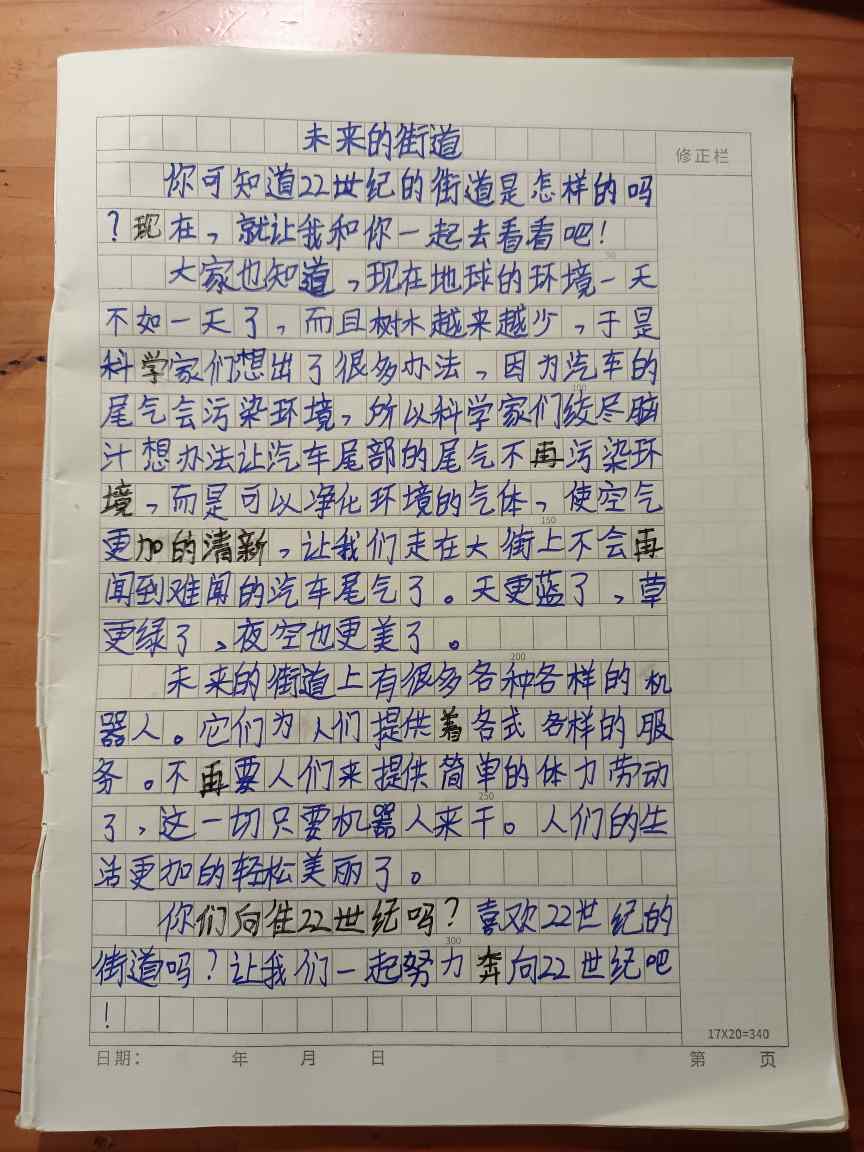 未来的街道
修正栏
你可知道22世纪的街道是怎样的吗
？现在，就让我和你一起去看看吧！
大家也知道，现在地球的环境一天
50
不如一天了，而且树木越来越少，于是
科学家们想出了很多办法，因为汽车的
100
尾气会污染环境，所以科学家们绞尽脑
汁想办法让汽车尾部的尾气不再污染环
境，而是可以净化环境的气体，使空气
150
更加的清新，让我们走在大街上不会再
闻到难闻的汽车尾气了。天更蓝了，草
更绿了，夜空也更美了。
200
未来的街道上有很多各种各样的机
器人。它们为人们提供着各式各样的服
务。不再要人们来提供简单的体力劳动
250
了，这一切只要机器人来干。人们的生
活更加的轻松美丽了。
你们向往22世纪吗？喜欢22世纪的
300
街道吗？让我们一起努力奔向22世纪吧
！
17X20=340
日期： 年 月 日 第 页